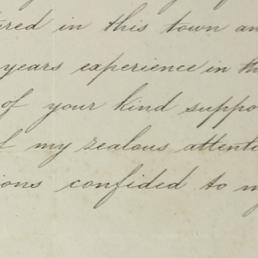 ered in this town an
years experience in th
of your kind suppo
f my zealous attenti
ions confided to m